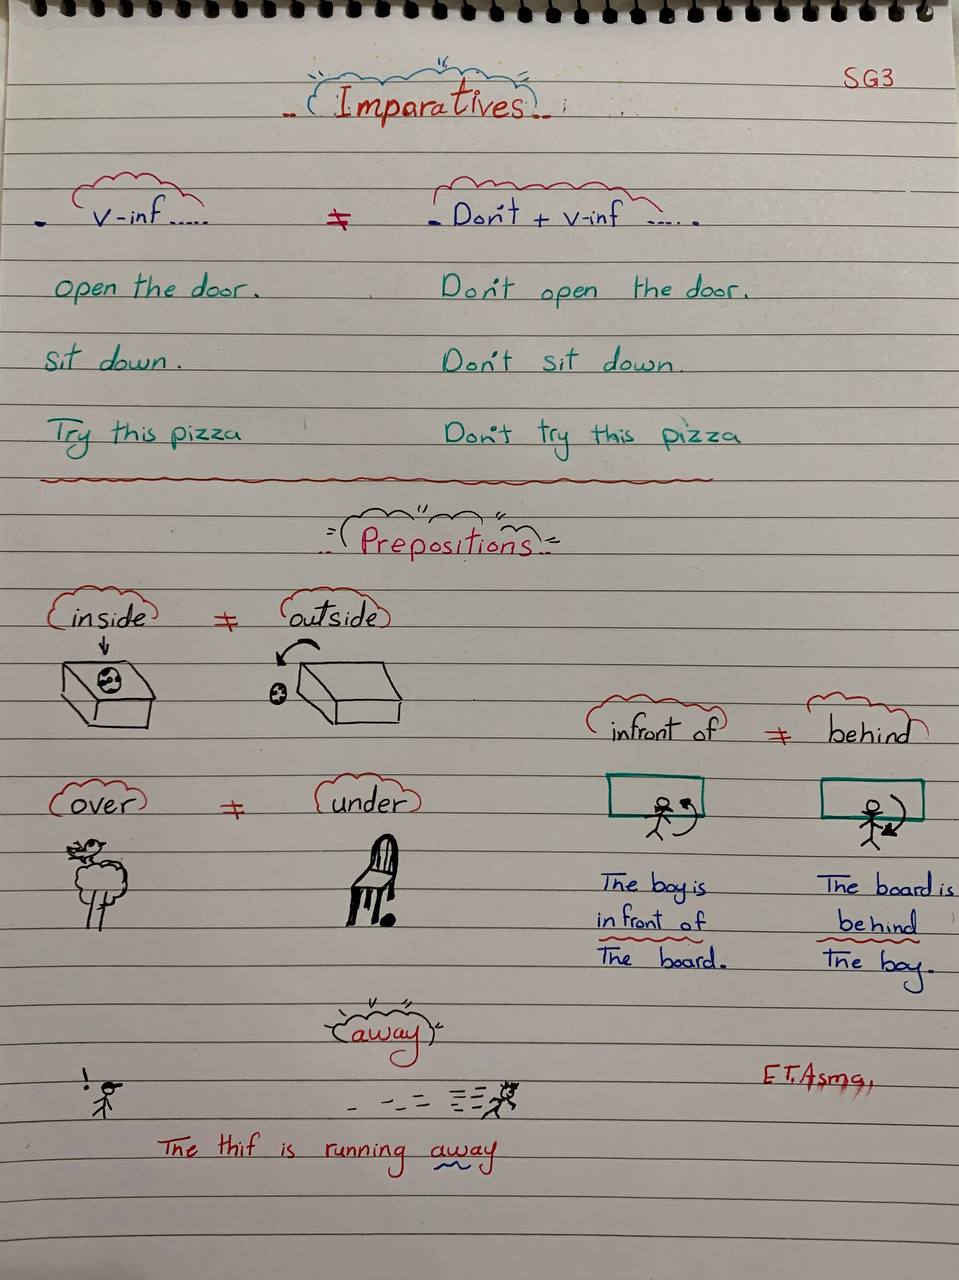 SG3
Imparatives
V-inf..... ≠ - Don't + v-inf .....
open the door. Don't open the door.
sit down. Don't sit down.
Try this pizza Don't try this pizza
Prepositions
inside ≠ outside
infront of ≠ behind
over ≠ under
The boy is
in front of
The board.
The board is
behind
the boy.
away
!
E.T.Asma,
The thif is running away